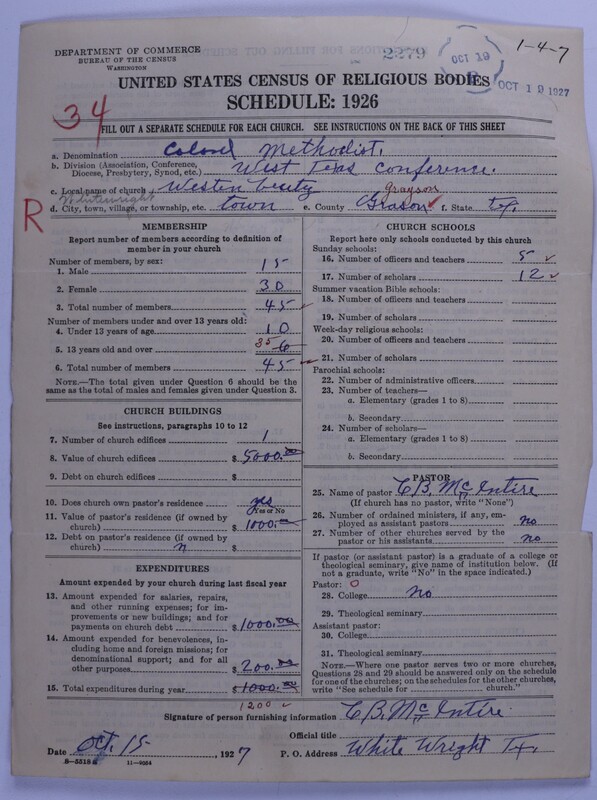 DEPARTMENT OF COMMERCE
BUREAU OF THE CENSUS
WASHINGTON
2279
OCT 19
OCT 19 1927
1-4-7
UNITED STATES CENSUS OF RELIGIOUS BODIES
SCHEDULE: 1926
34
FILL OUT A SEPARATE SCHEDULE FOR EACH CHURCH. SEE INSTRUCTIONS ON THE BACK OF THIS SHEET
a. Denomination Colored Methodist.
b. Division (Association, Conference, Diocese, Presbytery, Synod, etc.) West Texas Conference.
c. Local name of church Westen
Whitewright Grayson
d. City, town, village, or township, etc. town e. County Grason f. State Tx.
R
MEMBERSHIP
Report number of members according to definition of member in your church
Number of members, by sex:
1. Male 15
2. Female 30
3. Total number of members 45
Number of members under and over 13 years old:
4. Under 13 years of age 10
5. 13 years old and over 35 6
6. Total number of members 45
NOTE.—The total given under Question 6 should be the same as the total of males and females given under Question 3.
CHURCH BUILDINGS
See instructions, paragraphs 10 to 12
7. Number of church edifices 1
8. Value of church edifices $ 5000.00
9. Debt on church edifices $
10. Does church own pastor's residence yes
Yes or No
11. Value of pastor's residence (if owned by church) $ 1000.00
12. Debt on pastor's residence (if owned by church) n $
EXPENDITURES
Amount expended by your church during last fiscal year
13. Amount expended for salaries, repairs, and other running expenses; for improvements or new buildings; and for payments on church debt $ 1000.00
14. Amount expended for benevolences, including home and foreign missions; for denominational support; and for all other purposes $ 200.00
15. Total expenditures during year $ 1000.00
1200
CHURCH SCHOOLS
Report here only schools conducted by this church
Sunday schools:
16. Number of officers and teachers 5
17. Number of scholars 12
Summer vacation Bible schools:
18. Number of officers and teachers
19. Number of scholars
Week-day religious schools:
20. Number of officers and teachers
21. Number of scholars
Parochial schools:
22. Number of administrative officers
23. Number of teachers—
a. Elementary (grades 1 to 8)
b. Secondary
24. Number of scholars—
a. Elementary (grades 1 to 8)
b. Secondary
PASTOR
25. Name of pastor C B, Mc Intire
(If church has no pastor, write "None")
26. Number of ordained ministers, if any, employed as assistant pastors no
27. Number of other churches served by the pastor or his assistants no
If pastor (or assistant pastor) is a graduate of a college or theological seminary, give name of institution below. (If not a graduate, write "No" in the space indicated.)
Pastor: 0
28. College No
29. Theological seminary
Assistant pastor:
30. College
31. Theological seminary
NOTE.—Where one pastor serves two or more churches, Questions 28 and 29 should be answered only on the schedule for one of the churches; on the schedules for the other churches, write "See schedule for church."
Signature of person furnishing information C B, Mc Intire.
Official title
Date Oct, 15, 1927
P. O. Address White Wright Tx,
8-5518 a 11-9054